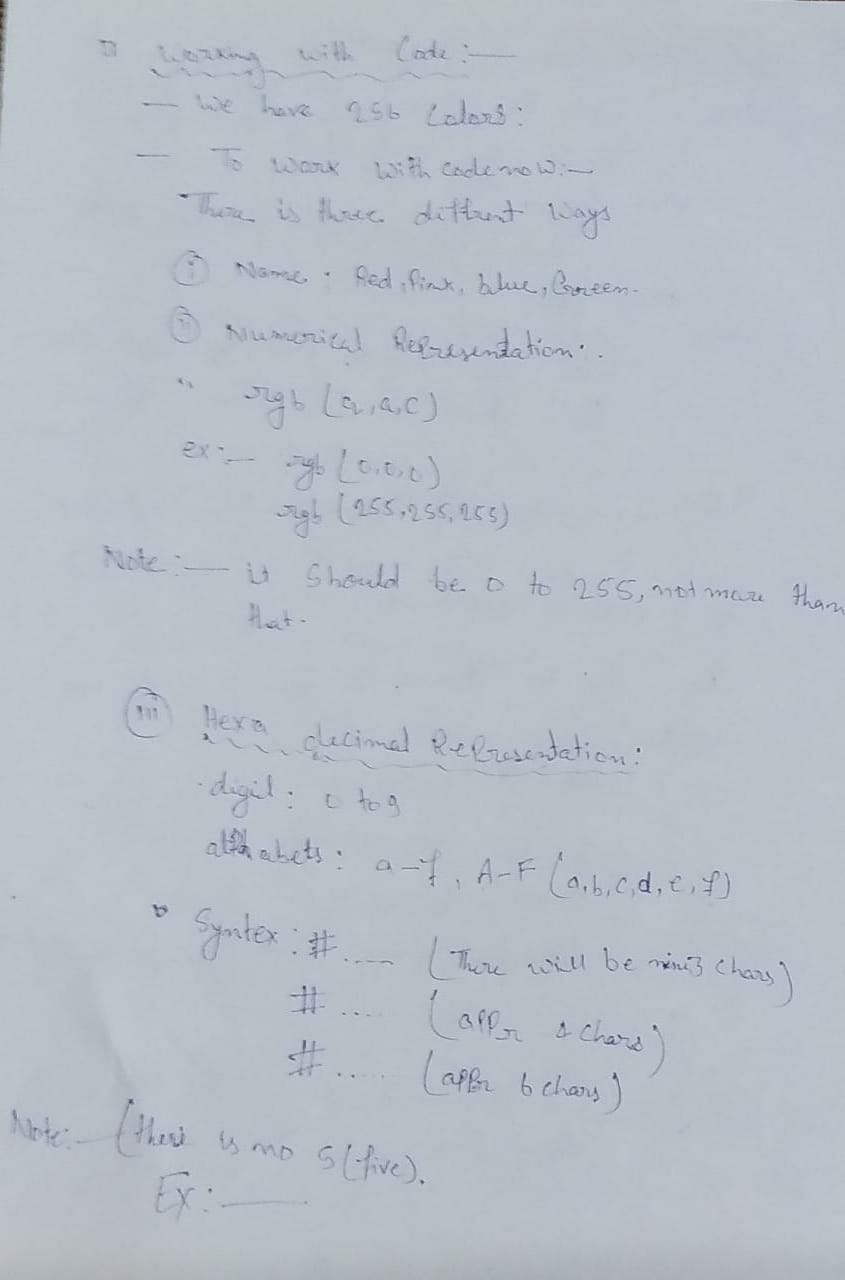 Working with Code:—
— We have 256 Colors:
— To work with code now:—
There is three diffrent ways
(i) Name : Red, Pink, blue, Green.
(ii) Numerical Representation:.
rgb (a,a,c)
ex:— rgb (0,0,0)
rgb (255,255,255)
Note:— it Should be 0 to 255, not more than
that.
(iii) Hexa decimal Representation:
digit: 0 to 9
alfhabets: a-f, A-F (a,b,c,d,e,f)
Syntex: #....— (There will be mini3 chars)
# .... (appr 4 chars)
# ..... (appr 6 chars)
Note:— (there is no 5(five).
Ex:—